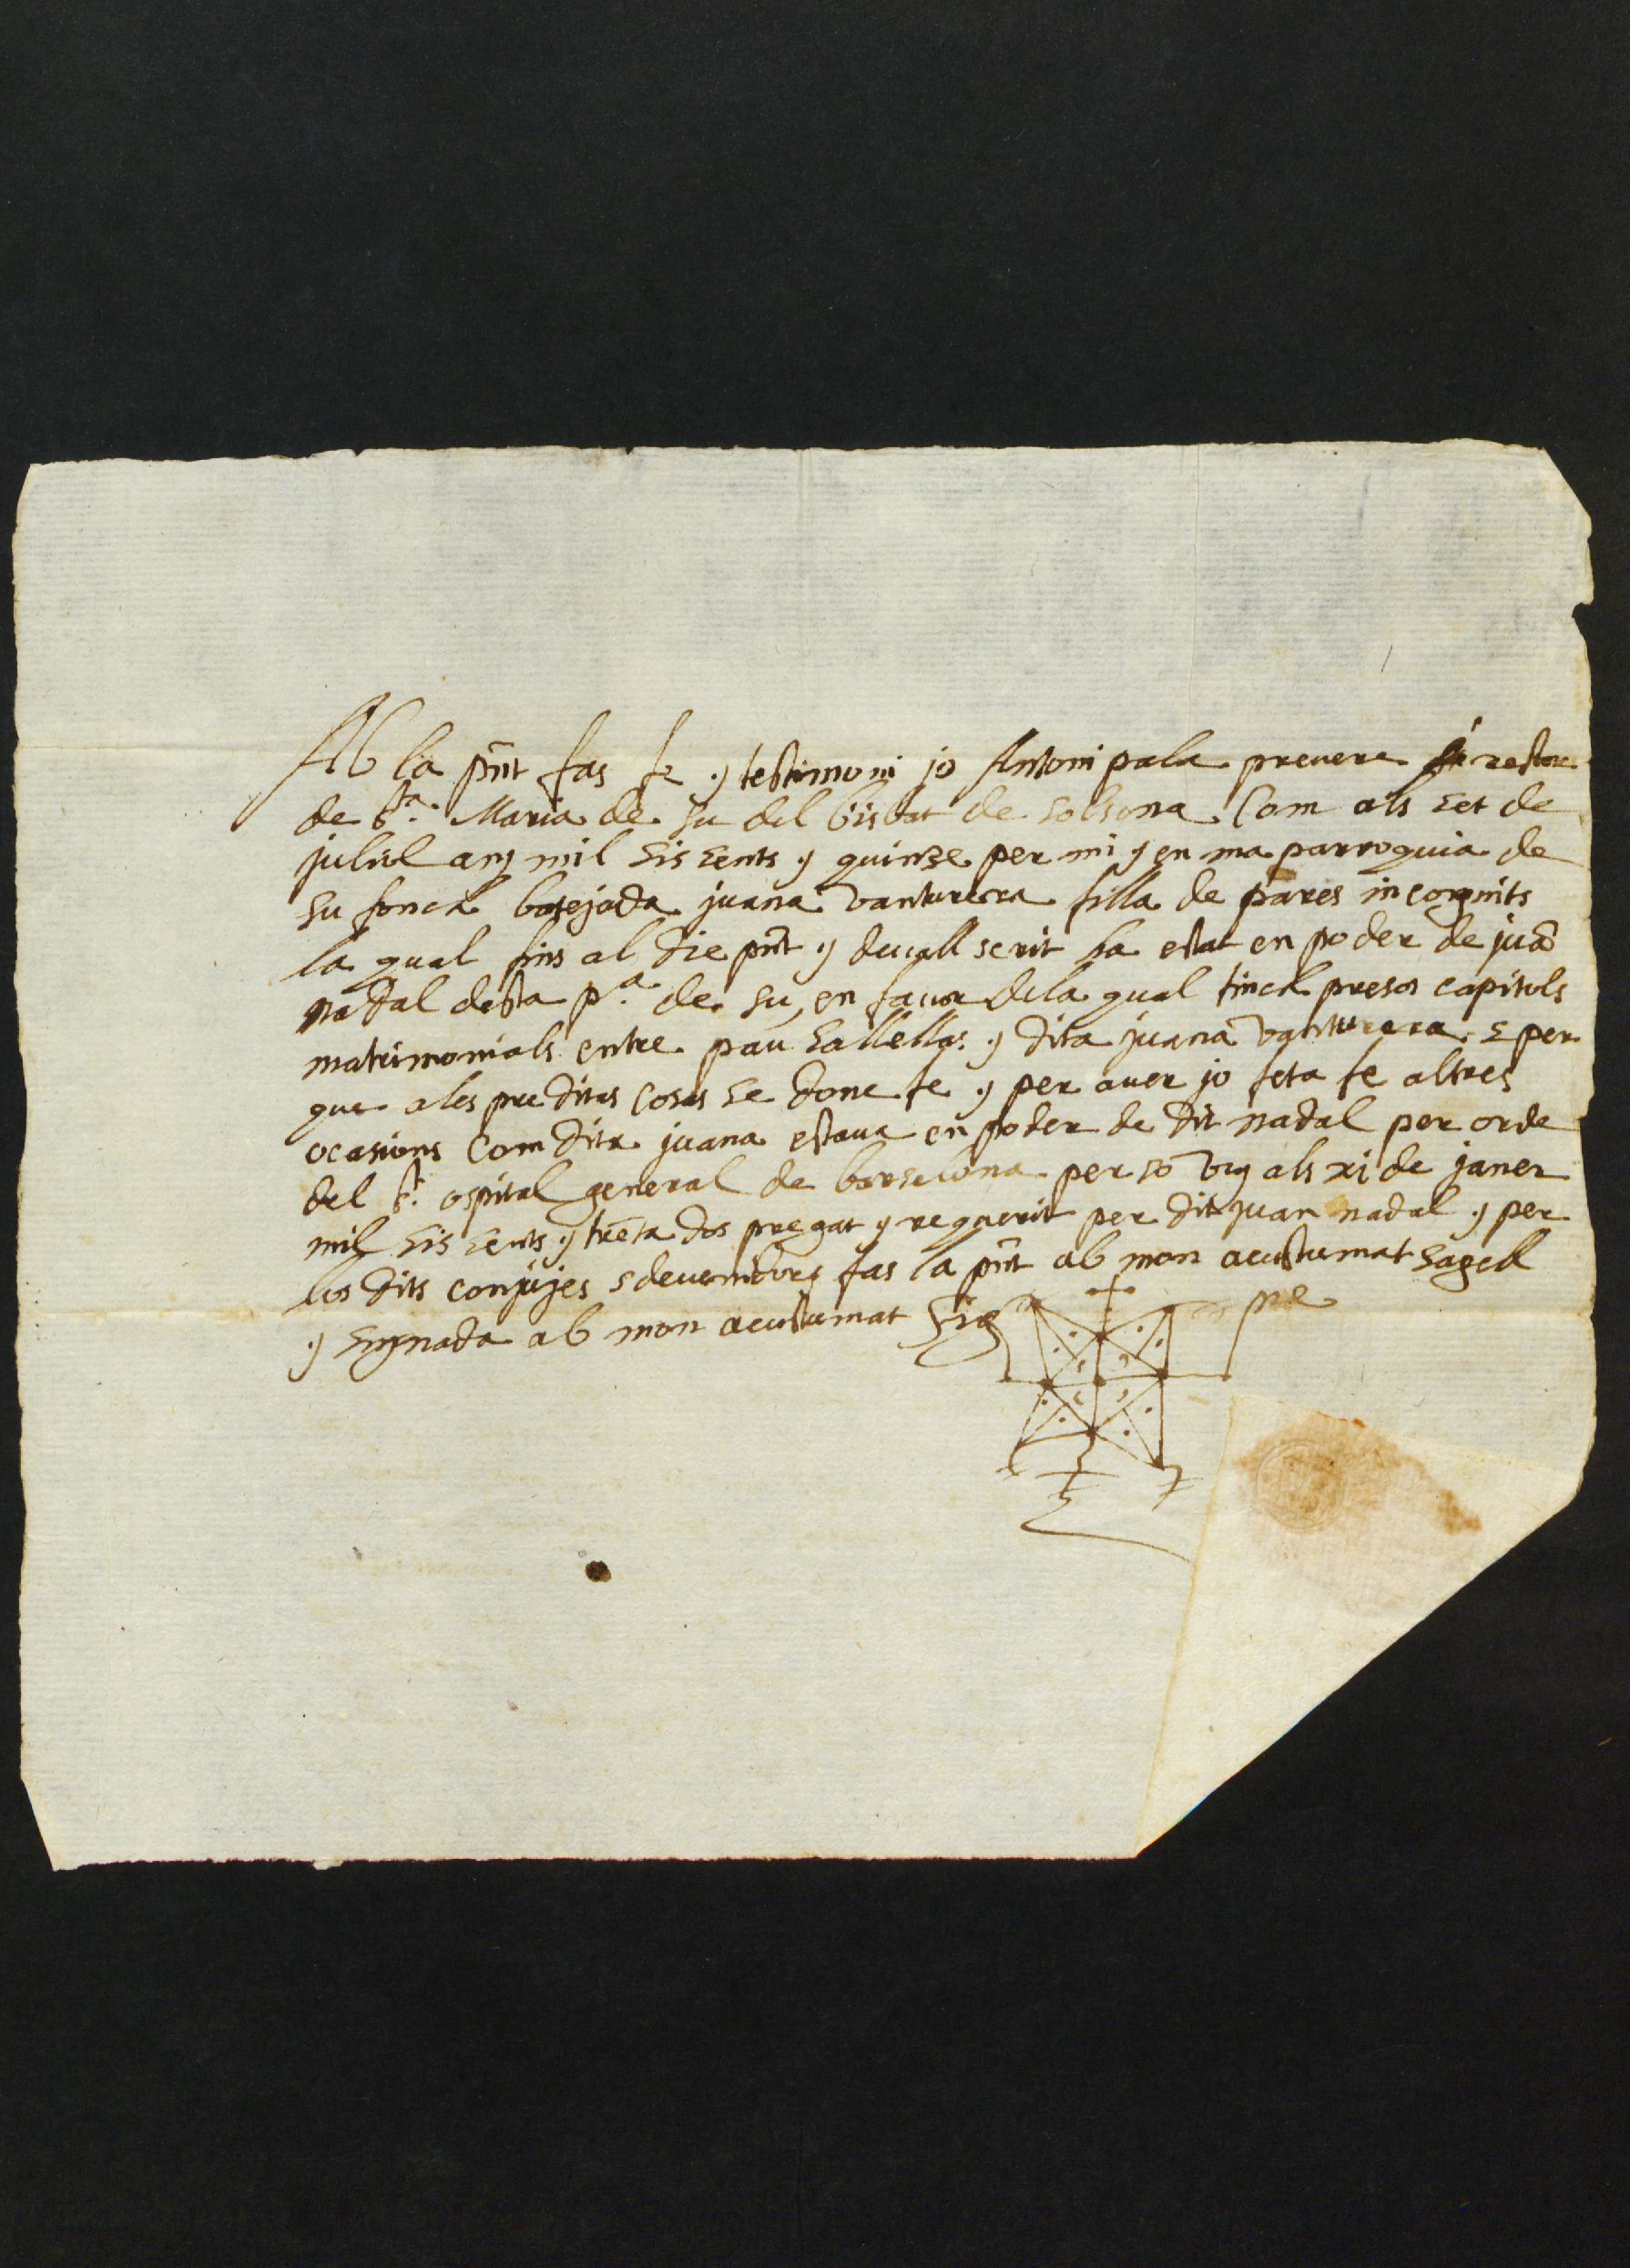 Ab la pñt fas fe y testimoni jo Antoni pala prevere rector
de Sta. Maria de su del bisbat de solsona Com als set de
juliol any mil sis sents y quinse per mi y en ma parroquia de
su fonch batejada juana vanturera filla de pares incognits
la qual fins al die pñt y devall scrit ha estat en poder de juã
nadal desta pa. de su, en favor dela qual tinch presos capitols
matrimonials entre pau sallellas y dita juana vanturera E per
que ales preditas cosas se done fe y per aver jo feta fe altres
ocasions Com dita juana estava en poder de dit nadal per orde
del St. ospital general de barselona per so vuy als xi de janer
mil sis sents y trẽta dos pregat y requerit per dit juan nadal y per
los dits conjujes sdevenidors fas la pñt ab mon acustumat sagell
y signada ab mon acustumat Sig pre